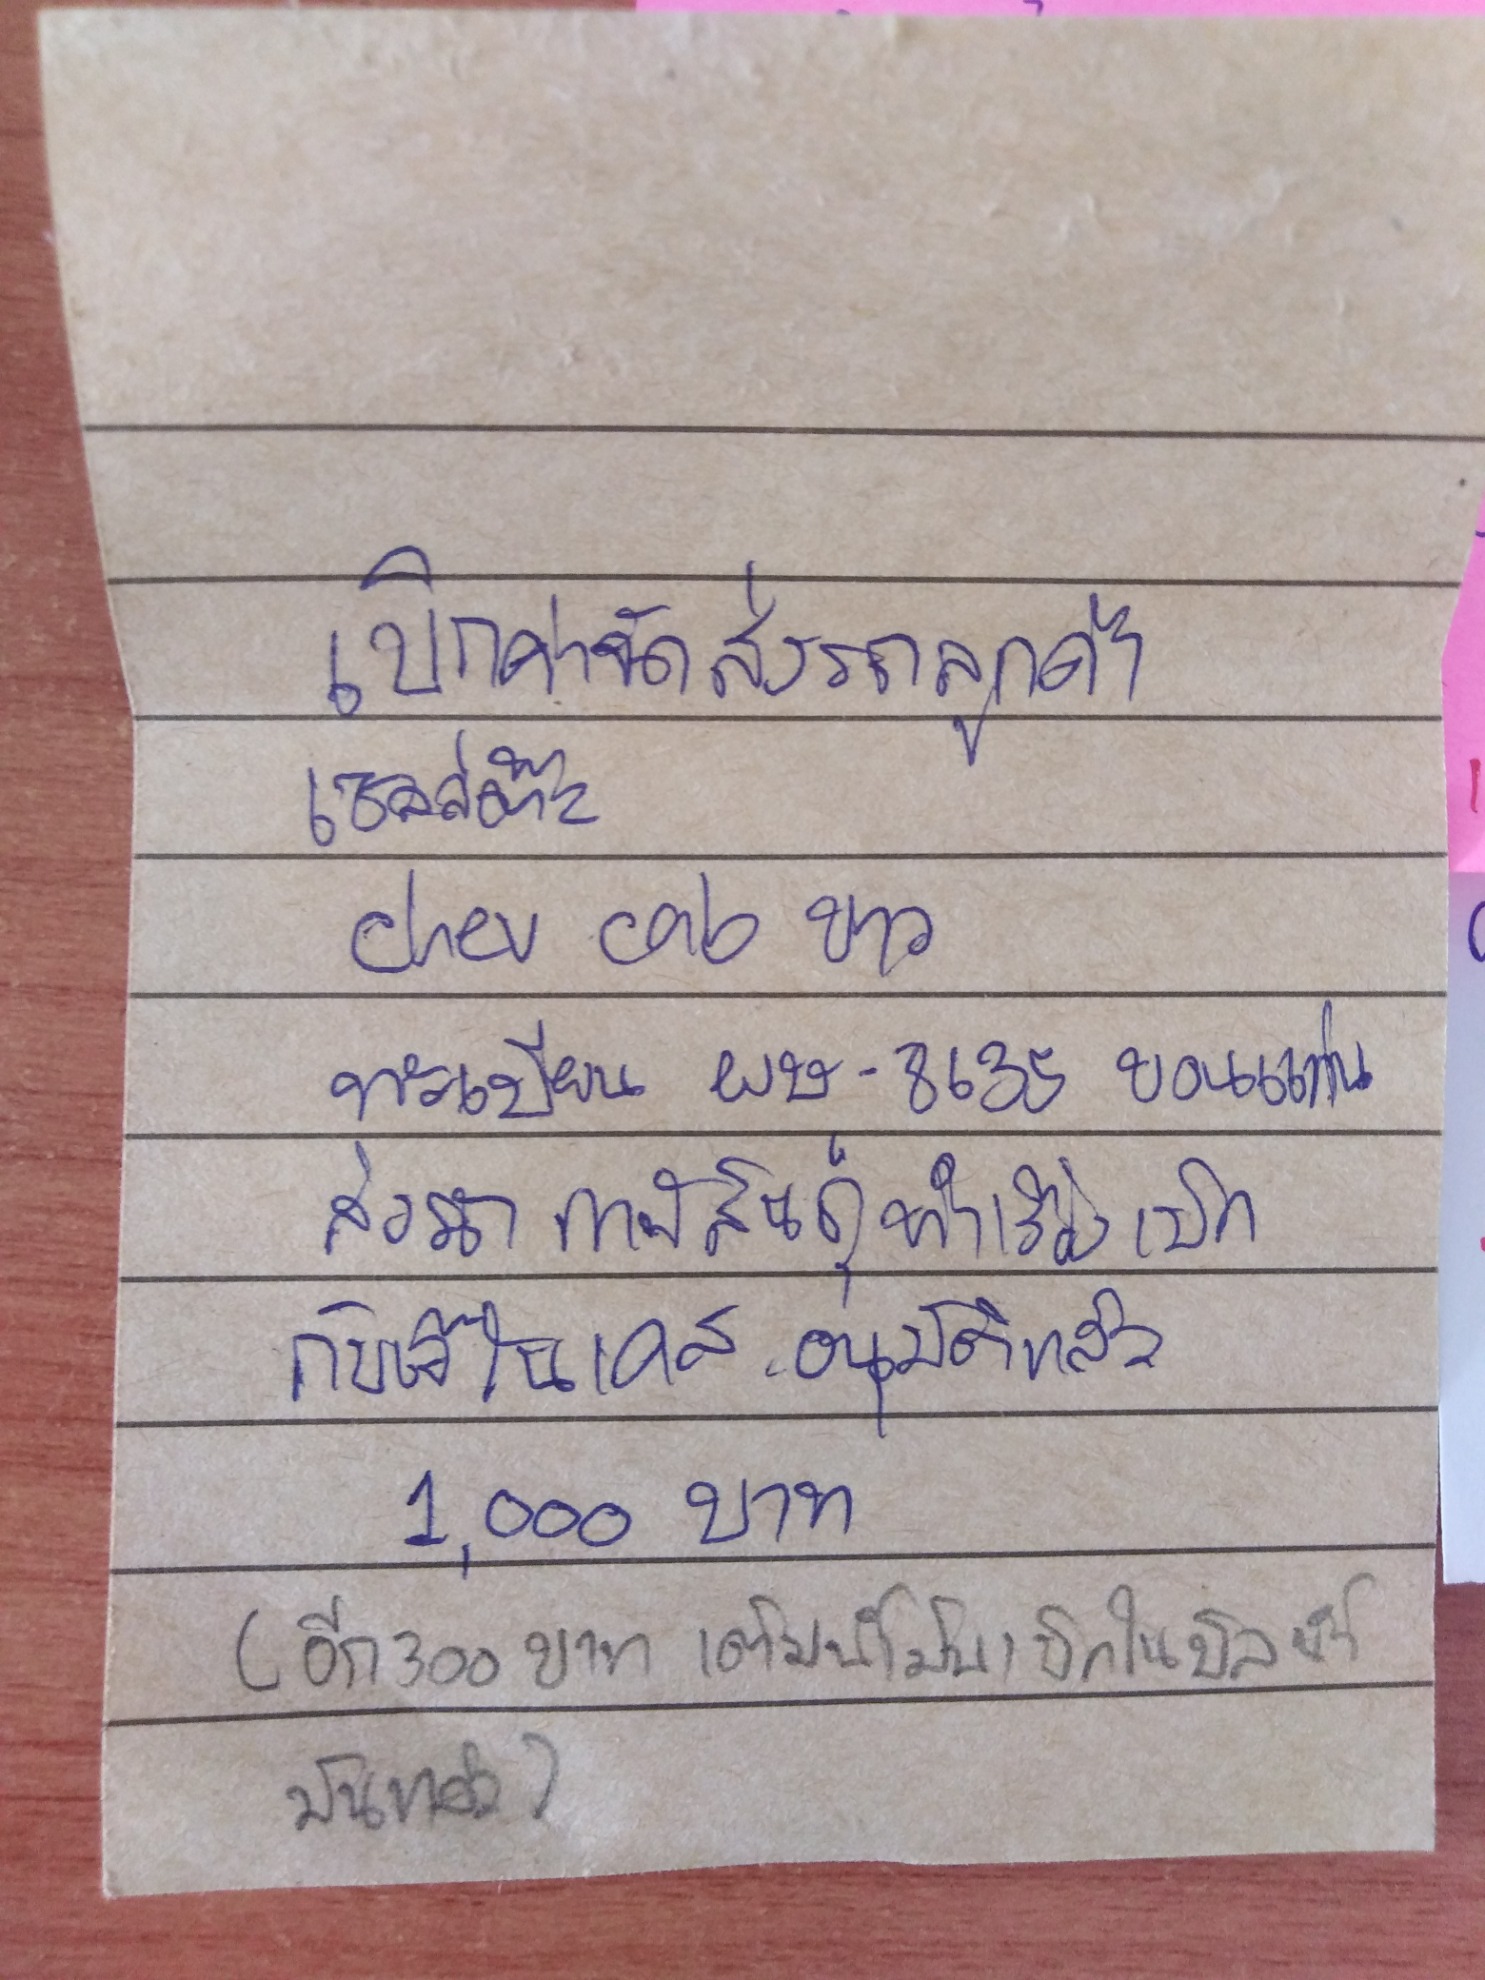 เบิกค่าจัดส่งรถลูกค้า
เซลล์ต๊ะ
chev cab ขาว
ทะเบียน ผษ-8635 ขอนแก่น
ส่งรถ กาฬสินธุ์ ทำเรื่องเบิก
กับเจ๊ในเคส อนุมัติแล้ว
1,000 บาท
(อีก 300 บาท เติมน้ำมันเบิกในบิลน้ำ
มันแล้ว)